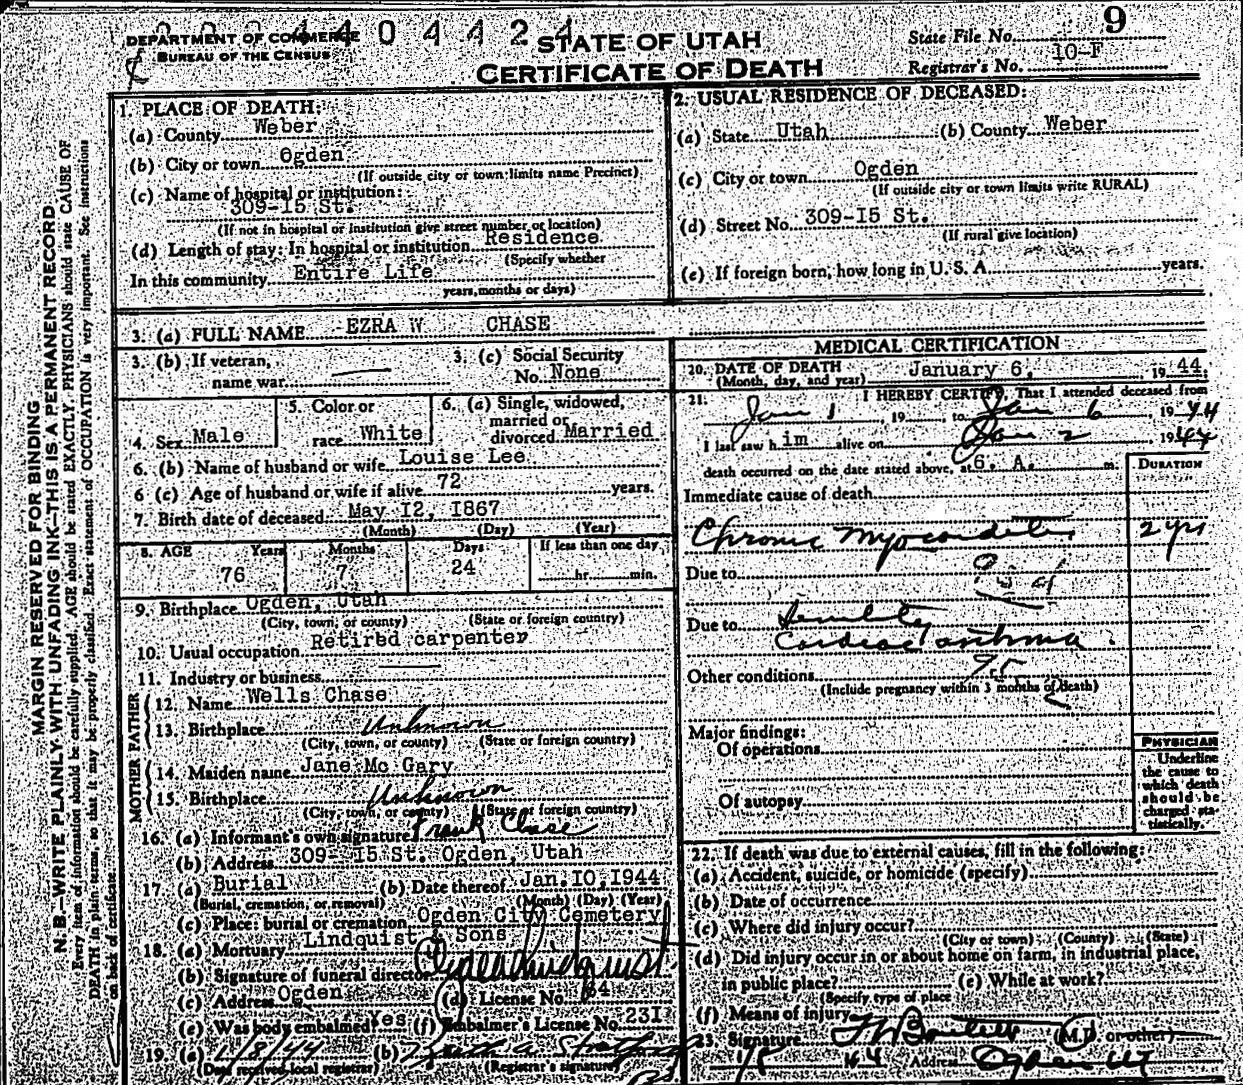 DEPARTMENT OF COMMERCE
BUREAU OF THE CENSUS
404424
STATE OF UTAH
CERTIFICATE OF DEATH
State File No. 9
Registrar's No. 10-F
MARGIN RESERVED FOR BINDING
N. B.—WRITE PLAINLY WITH UNFADING INK—THIS IS A PERMANENT RECORD
Every item of information should be carefully supplied. AGE should be stated EXACTLY. PHYSICIANS should state CAUSE OF
DEATH in plain terms, so that it may be properly classified. Exact statement of OCCUPATION is very important. See instructions
on back of certificate.
1. PLACE OF DEATH:
(a) County Weber
(b) City or town Ogden
(If outside city or town limits name Precinct)
(c) Name of hospital or institution:
309-15 St.
(If not in hospital or institution give street number or location)
(d) Length of stay: In hospital or institution Residence
(Specify whether
In this community Entire Life
years, months or days)
2. USUAL RESIDENCE OF DECEASED:
(a) State Utah (b) County Weber
(c) City or town Ogden
(If outside city or town limits write RURAL)
(d) Street No. 309-15 St.
(If rural give location)
(e) If foreign born, how long in U. S. A. years.
3. (a) FULL NAME EZRA W CHASE
3. (b) If veteran,
name war
3. (c) Social Security
No. None
4. Sex Male
5. Color or
race White
6. (a) Single, widowed,
married or
divorced Married
6. (b) Name of husband or wife Louise Lee
6 (c) Age of husband or wife if alive 72 years.
7. Birth date of deceased May 12, 1867
(Month) (Day) (Year)
8. AGE Years Months Days If less than one day
76 7 24 hr. min.
9. Birthplace Ogden, Utah
(City, town, or county) (State or foreign country)
10. Usual occupation Retired carpenter
11. Industry or business
FATHER
12. Name Wells Chase
13. Birthplace Unknown
(City, town, or county) (State or foreign country)
MOTHER
14. Maiden name Jane Mc Gary
15. Birthplace Unknown
(City, town, or county) (State or foreign country)
16. (a) Informant's own signature Frank Chase
(b) Address 309- 15 St. Ogden, Utah
17. (a) Burial (b) Date thereof Jan. 10, 1944
(Burial, cremation, or removal) (Month) (Day) (Year)
(c) Place: burial or cremation Ogden City Cemetery
18. (a) Mortuary Lindquist & Sons
(b) Signature of funeral director
(c) Address Ogden (d) License No. 64
(e) Was body embalmed Yes (f) Embalmer's License No. 231
19. (a) 1/8/44 (b)
(Date received local registrar) (Registrar's signature)
MEDICAL CERTIFICATION
20. DATE OF DEATH January 6, 1944.
(Month, day, and year)
21. I HEREBY CERTIFY, That I attended deceased from
Jan 1 19 to Jan 6 1944
I last saw him alive on Jan 2 1944
death occurred on the date stated above, at 6. A. m.
DURATION
Immediate cause of death
Chronic Myocarditis 2 yrs
Due to
Due to Senility
Cardiac asthma
Other conditions
(Include pregnancy within 3 months of death)
Major findings:
Of operations
Of autopsy
PHYSICIAN
Underline
the cause to
which death
should be
charged sta-
tistically.
22. If death was due to external causes, fill in the following:
(a) Accident, suicide, or homicide (specify)
(b) Date of occurrence
(c) Where did injury occur?
(City or town) (County) (State)
(d) Did injury occur in or about home on farm, in industrial place,
in public place? (e) While at work?
(Specify type of place
(f) Means of injury
23. Signature (M.D. or other)
1/8 44 Address Ogden Ut